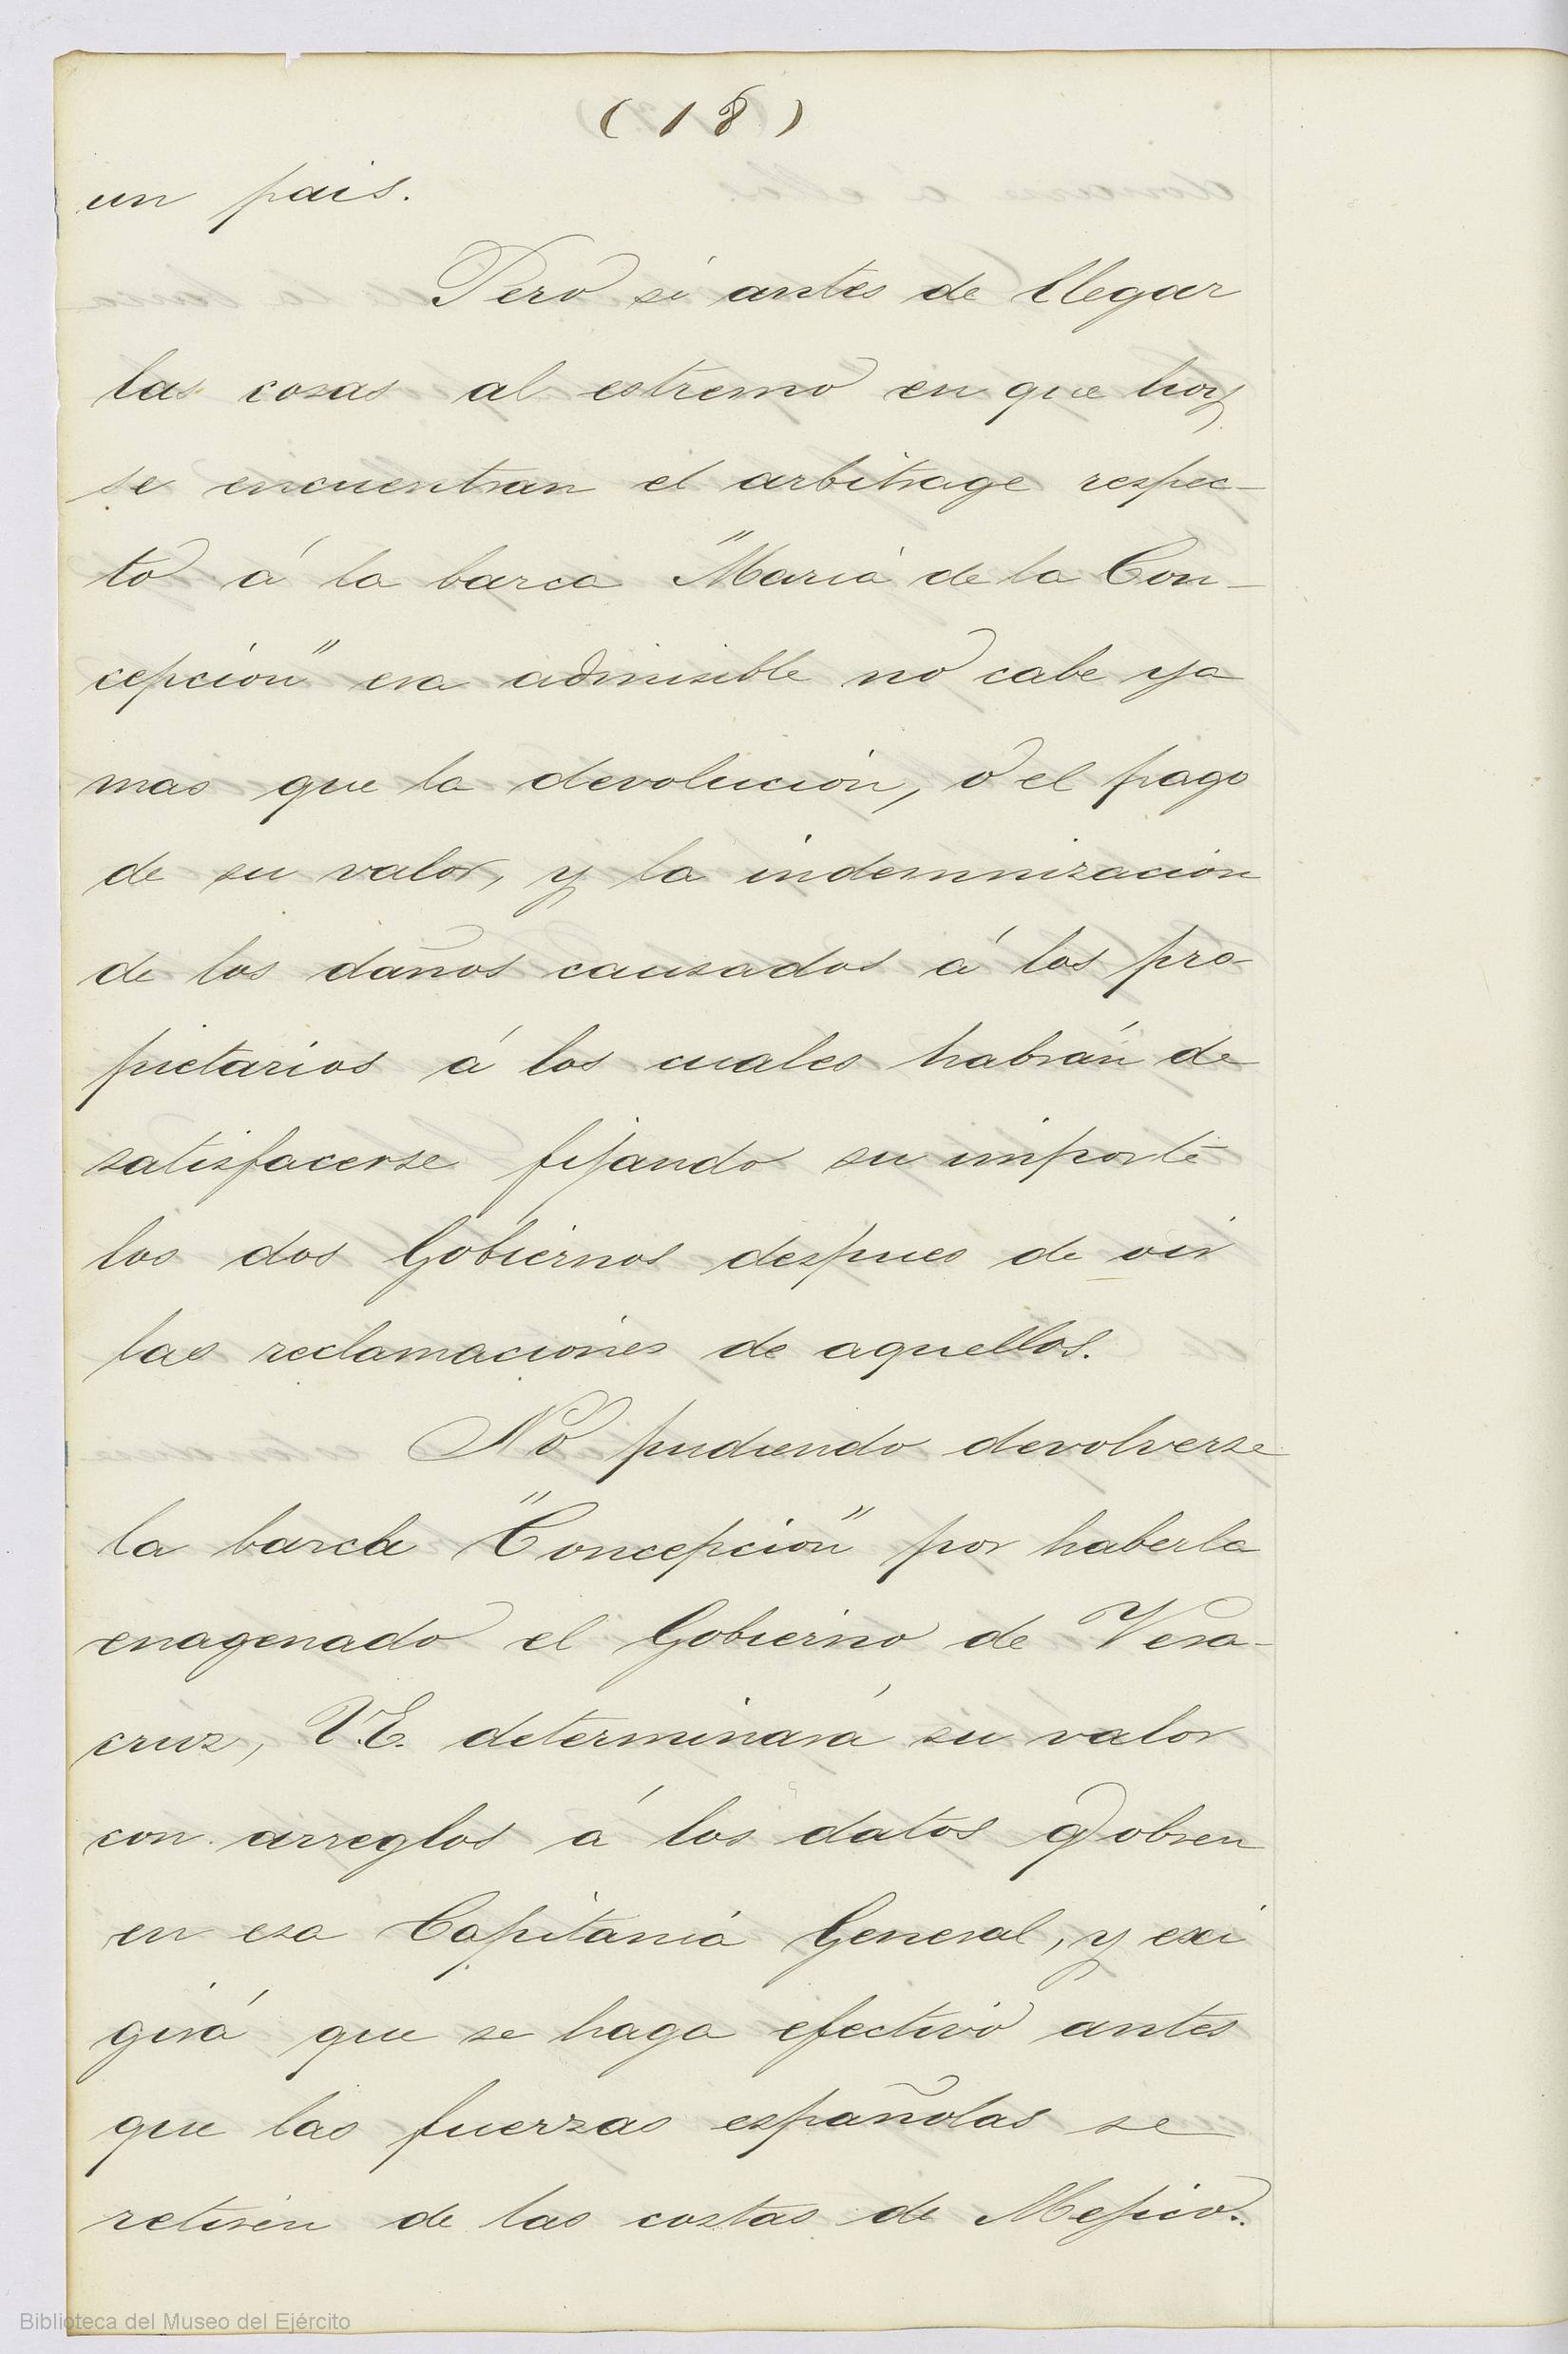 (18)
un pais.
Pero si antes de llegar
las cosas al estremo en que hoy
se encuentran el arbitrage respec-
to á la barca "Maria de la Con-
cepcion" era admisible no cabe ya
mas que la devolucion, ó el pago
de su valor, y la indemnizacion
de los daños causados á los pro-
pietarios á los cuales habrán de
satisfacerse fijando su importe
los dos Gobiernos despues de oir
las reclamaciones de aquellos.
No pudiendo devolverse
la barca "Concepcion" por haberla
enagenado el Gobierno de Vera-
cruz, V.E. determinará su valor
con arreglos á los datos q obren
en esa Capitania General, y exi
girá que se haga efectivo antes
que las fuerzas españolas se
retiren de las costas de Mejico.
Biblioteca del Museo del Ejército